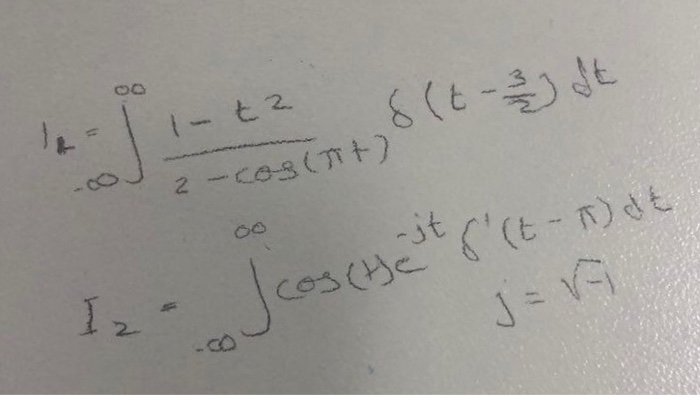 I₁ = ∫_{-∞}^{∞} \frac{1 - t^2}{2 - cos(πt)} δ(t - \frac{3}{2}) dt
I₂ = ∫_{-∞}^{∞} cos(t) e^{-jt} δ'(t - π) dt
j = √-1